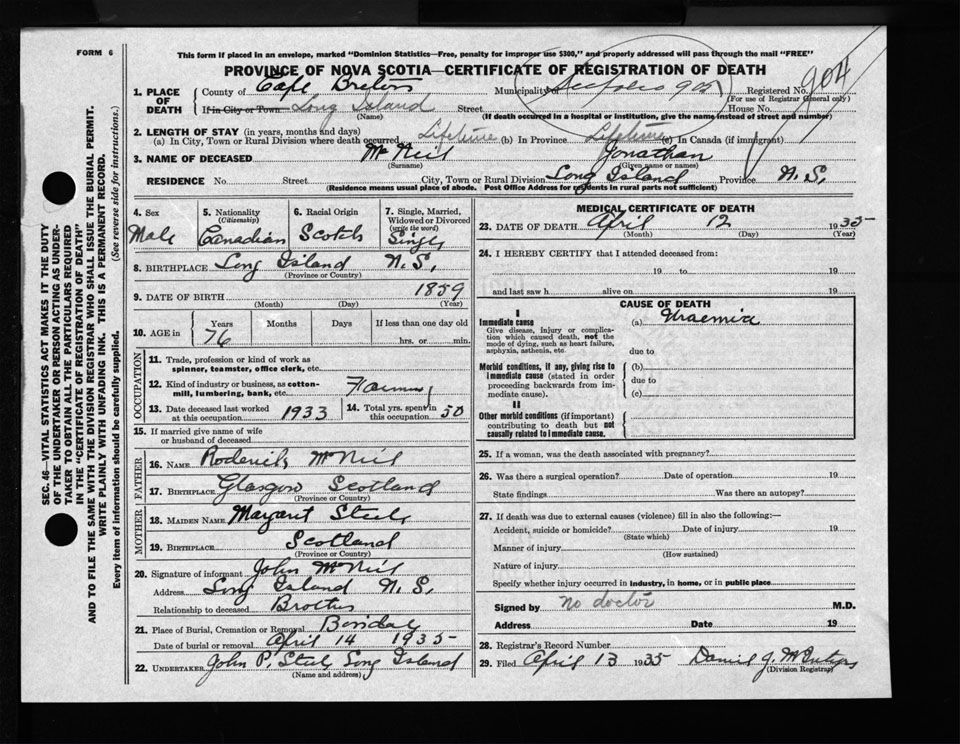 FORM 6
This form if placed in an envelope, marked "Dominion Statistics—Free, penalty for improper use $300," and properly addressed will pass through the mail "FREE"
PROVINCE OF NOVA SCOTIA—CERTIFICATE OF REGISTRATION OF DEATH
904
1. PLACE OF DEATH County of Cape Breton Municipality See folio 905 Registered No.
(For use of Registrar General only)
If in City or Town Long Island Street House No.
(Name) (If death occurred in a hospital or institution, give the name instead of street and number)
2. LENGTH OF STAY (in years, months and days)
(a) In City, Town or Rural Division where death occurred Lifetime (b) In Province Lifetime (c) In Canada (if immigrant)
3. NAME OF DECEASED McNeil Jonathan
(Surname) (Given name or names)
RESIDENCE No. Street City, Town or Rural Division Long Island Province N.S.
(Residence means usual place of abode. Post Office Address for residents in rural parts not sufficient)
SEC. 46—VITAL STATISTICS ACT MAKES IT THE DUTY
OF THE UNDERTAKER OR PERSON ACTING AS UNDER-
TAKER TO OBTAIN ALL THE PARTICULARS REQUIRED
IN THE "CERTIFICATE OF REGISTRATION OF DEATH"
AND TO FILE THE SAME WITH THE DIVISION REGISTRAR WHO SHALL ISSUE THE BURIAL PERMIT.
WRITE PLAINLY WITH UNFADING INK. THIS IS A PERMANENT RECORD.
Every item of information should be carefully supplied. (See reverse side for instructions.)
4. Sex 5. Nationality (Citizenship) 6. Racial Origin 7. Single, Married, Widowed or Divorced (write the word)
Male Canadian Scotch Single
8. BIRTHPLACE Long Island N.S.
(Province or Country)
9. DATE OF BIRTH 1859
(Month) (Day) (Year)
10. AGE in Years Months Days If less than one day old
76 hrs. or min.
OCCUPATION
11. Trade, profession or kind of work as
spinner, teamster, office clerk, etc.
12. Kind of industry or business, as cotton-
mill, lumbering, bank, etc. Farming
13. Date deceased last worked at this occupation 1933 14. Total yrs. spent in this occupation 50
15. If married give name of wife
or husband of deceased
FATHER
16. NAME Roderick McNeil
17. BIRTHPLACE Glasgow Scotland
(Province or Country)
MOTHER
18. MAIDEN NAME Margaret Steele
19. BIRTHPLACE Scotland
(Province or Country)
20. Signature of informant John McNeil
Address Long Island N.S.
Relationship to deceased Brother
21. Place of Burial, Cremation or Removal
Date of burial or removal April 14 1935
22. UNDERTAKER John P. Steele Long Island
(Name and address)
MEDICAL CERTIFICATE OF DEATH
23. DATE OF DEATH April 12 1935
(Month) (Day) (Year)
24. I HEREBY CERTIFY that I attended deceased from:
19 to 19
and last saw h alive on 19
CAUSE OF DEATH
I
Immediate cause (a) Uraemia
Give disease, injury or complica-
tion which caused death, not the
mode of dying, such as heart failure,
asphyxia, asthenia, etc. due to
Morbid conditions, if any, giving rise to (b)
immediate cause (stated in order due to
proceeding backwards from im-
mediate cause). (c)
II
Other morbid conditions (if important)
contributing to death but not
causally related to immediate cause.
25. If a woman, was the death associated with pregnancy?
26. Was there a surgical operation? Date of operation 19
State findings Was there an autopsy?
27. If death was due to external causes (violence) fill in also the following:—
Accident, suicide or homicide? Date of injury 19
(State which)
Manner of injury
(How sustained)
Nature of injury
Specify whether injury occurred in industry, in home, or in public place
Signed by no doctor M.D.
Address Date 19
28. Registrar's Record Number
29. Filed April 13 1935 Daniel J.
(Division Registrar)